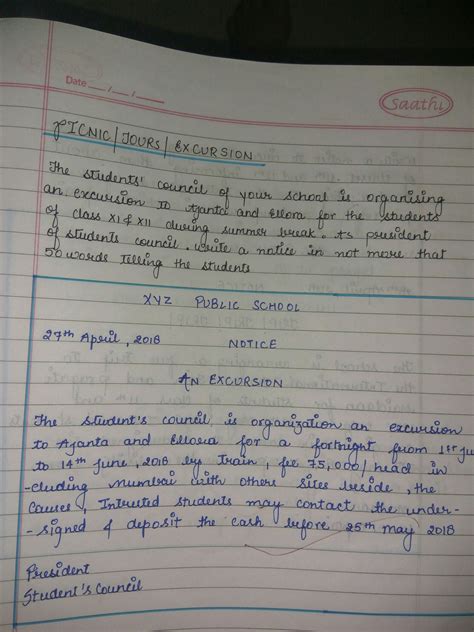 Saathi
Date __/__/__
PICNIC/TOURS/EXCURSION
The students' council of your school is organising
an excursion to Ajanta and Ellora for the students
of class XI & XII during summer break. As president
of students council. write a notice in not more that
50 words telling the students
XYZ PUBLIC SCHOOL
27th April, 2018
NOTICE
AN EXCURSION
The student's council, is organization an excursion
to Ajanta and Ellora for a fortnight from 1st
to 14th June, 2018 by train, fee 75,000/ head in
-cluding mumbai with others sites beside, the
causes, Intrusted students may contact the under-
-signed & deposit the cash before 25th may 2018
President
Student's Council